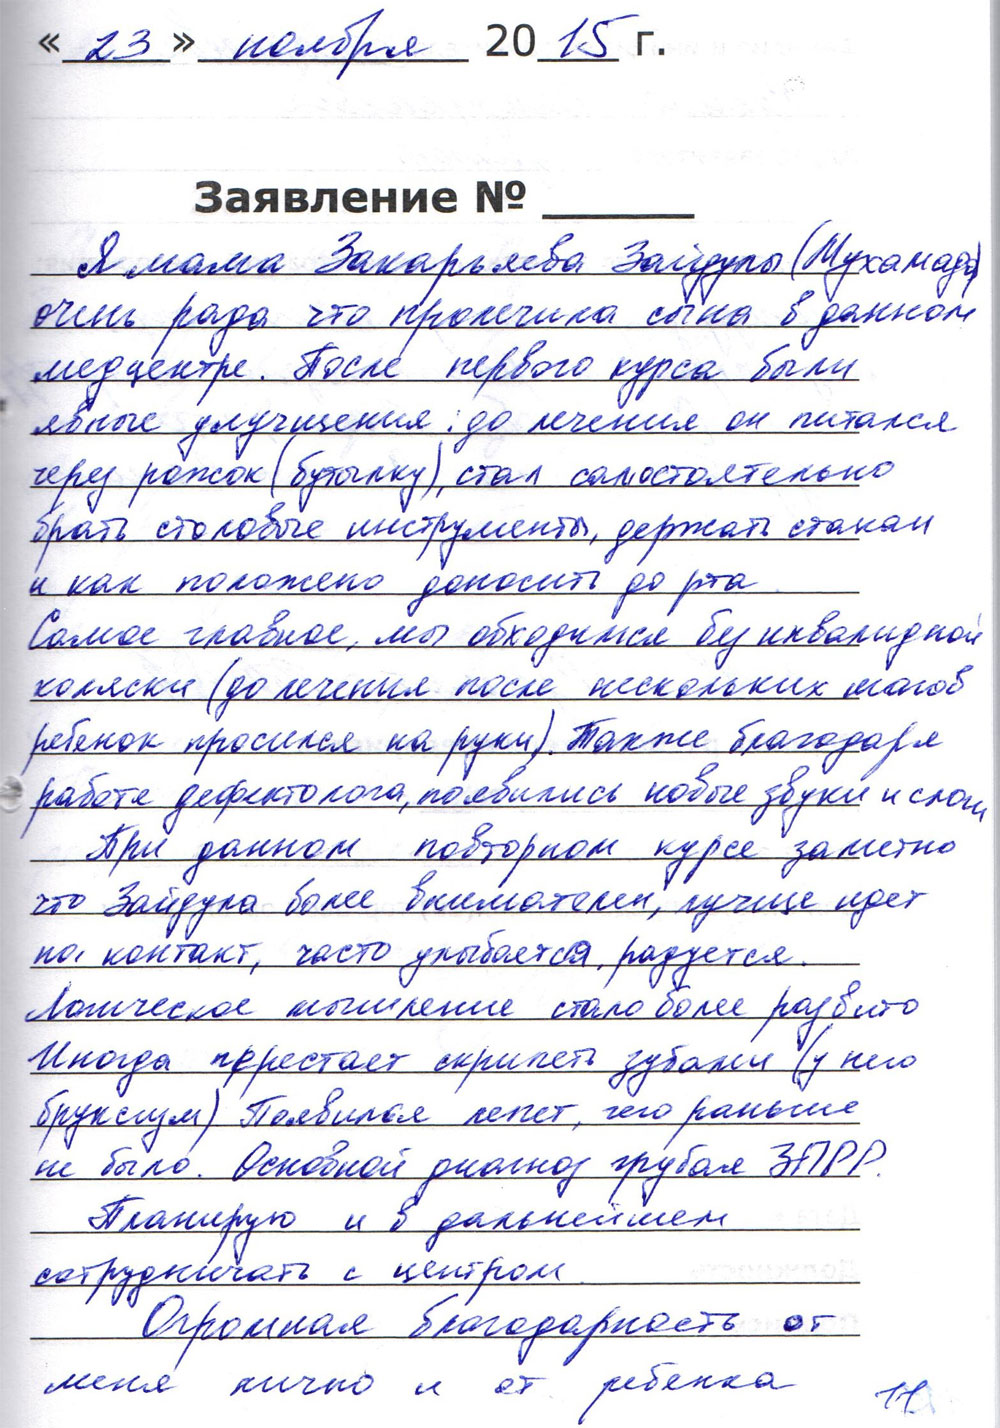 « 23 » ноября 2015 г.
Заявление № ______
Я мама Закарьяева Зайдулы (Мухамада)
очень рада что пролечила сына в данном
медцентре. После первого курса были
явные улучшения: до лечения он питался
через рожок (бутылку), стал самостоятельно
брать столовые инструменты, держать стакан
и как положено доносить до рта.
Самое главное, мы обходимся без инвалидной
коляски (до лечения после нескольких шагов
ребенок просился на руки). Также благодаря
работе дефектолога, появились новые звуки и слоги
При данном повторном курсе заметно
что Зайдула более внимателен, лучше идет
на контакт, часто улыбается, радуется.
Логическое мышление стало более развито
Иногда перестает скрипеть зубами (у него
бруксизм) Появился лепет, чего раньше
не было. Основной диагноз грубая ЗПРР.
Планирую и в дальнейшем
сотрудничать с центром
Огромная благодарность от
меня лично и от ребенка